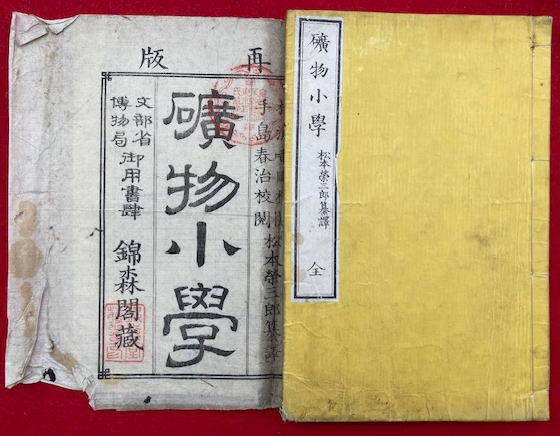 礦物小學
松本榮三郎纂譯
全
再版
手島春治校閲
松本榮三郎纂譯
礦物小學
文部省
博物局
御用書肆
錦森閣藏